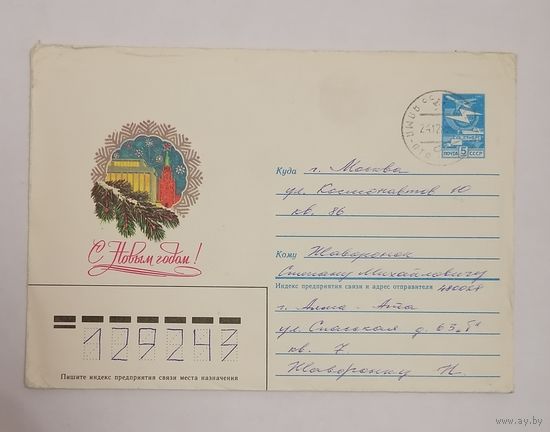 ПОЧТА 5 СССР
24 12
Куда г. Москва
ул. Космонавтов 10
кв. 86
С Новым годом!
Кому Жаворонок
Степану Михайловичу
Индекс предприятия связи и адрес отправителя 480028
г. Алма-Ата
ул. Спасская д. 63 "Г"
кв. 7
Жаворонку П.
129243
Пишите индекс предприятия связи места назначения
www.ay.by